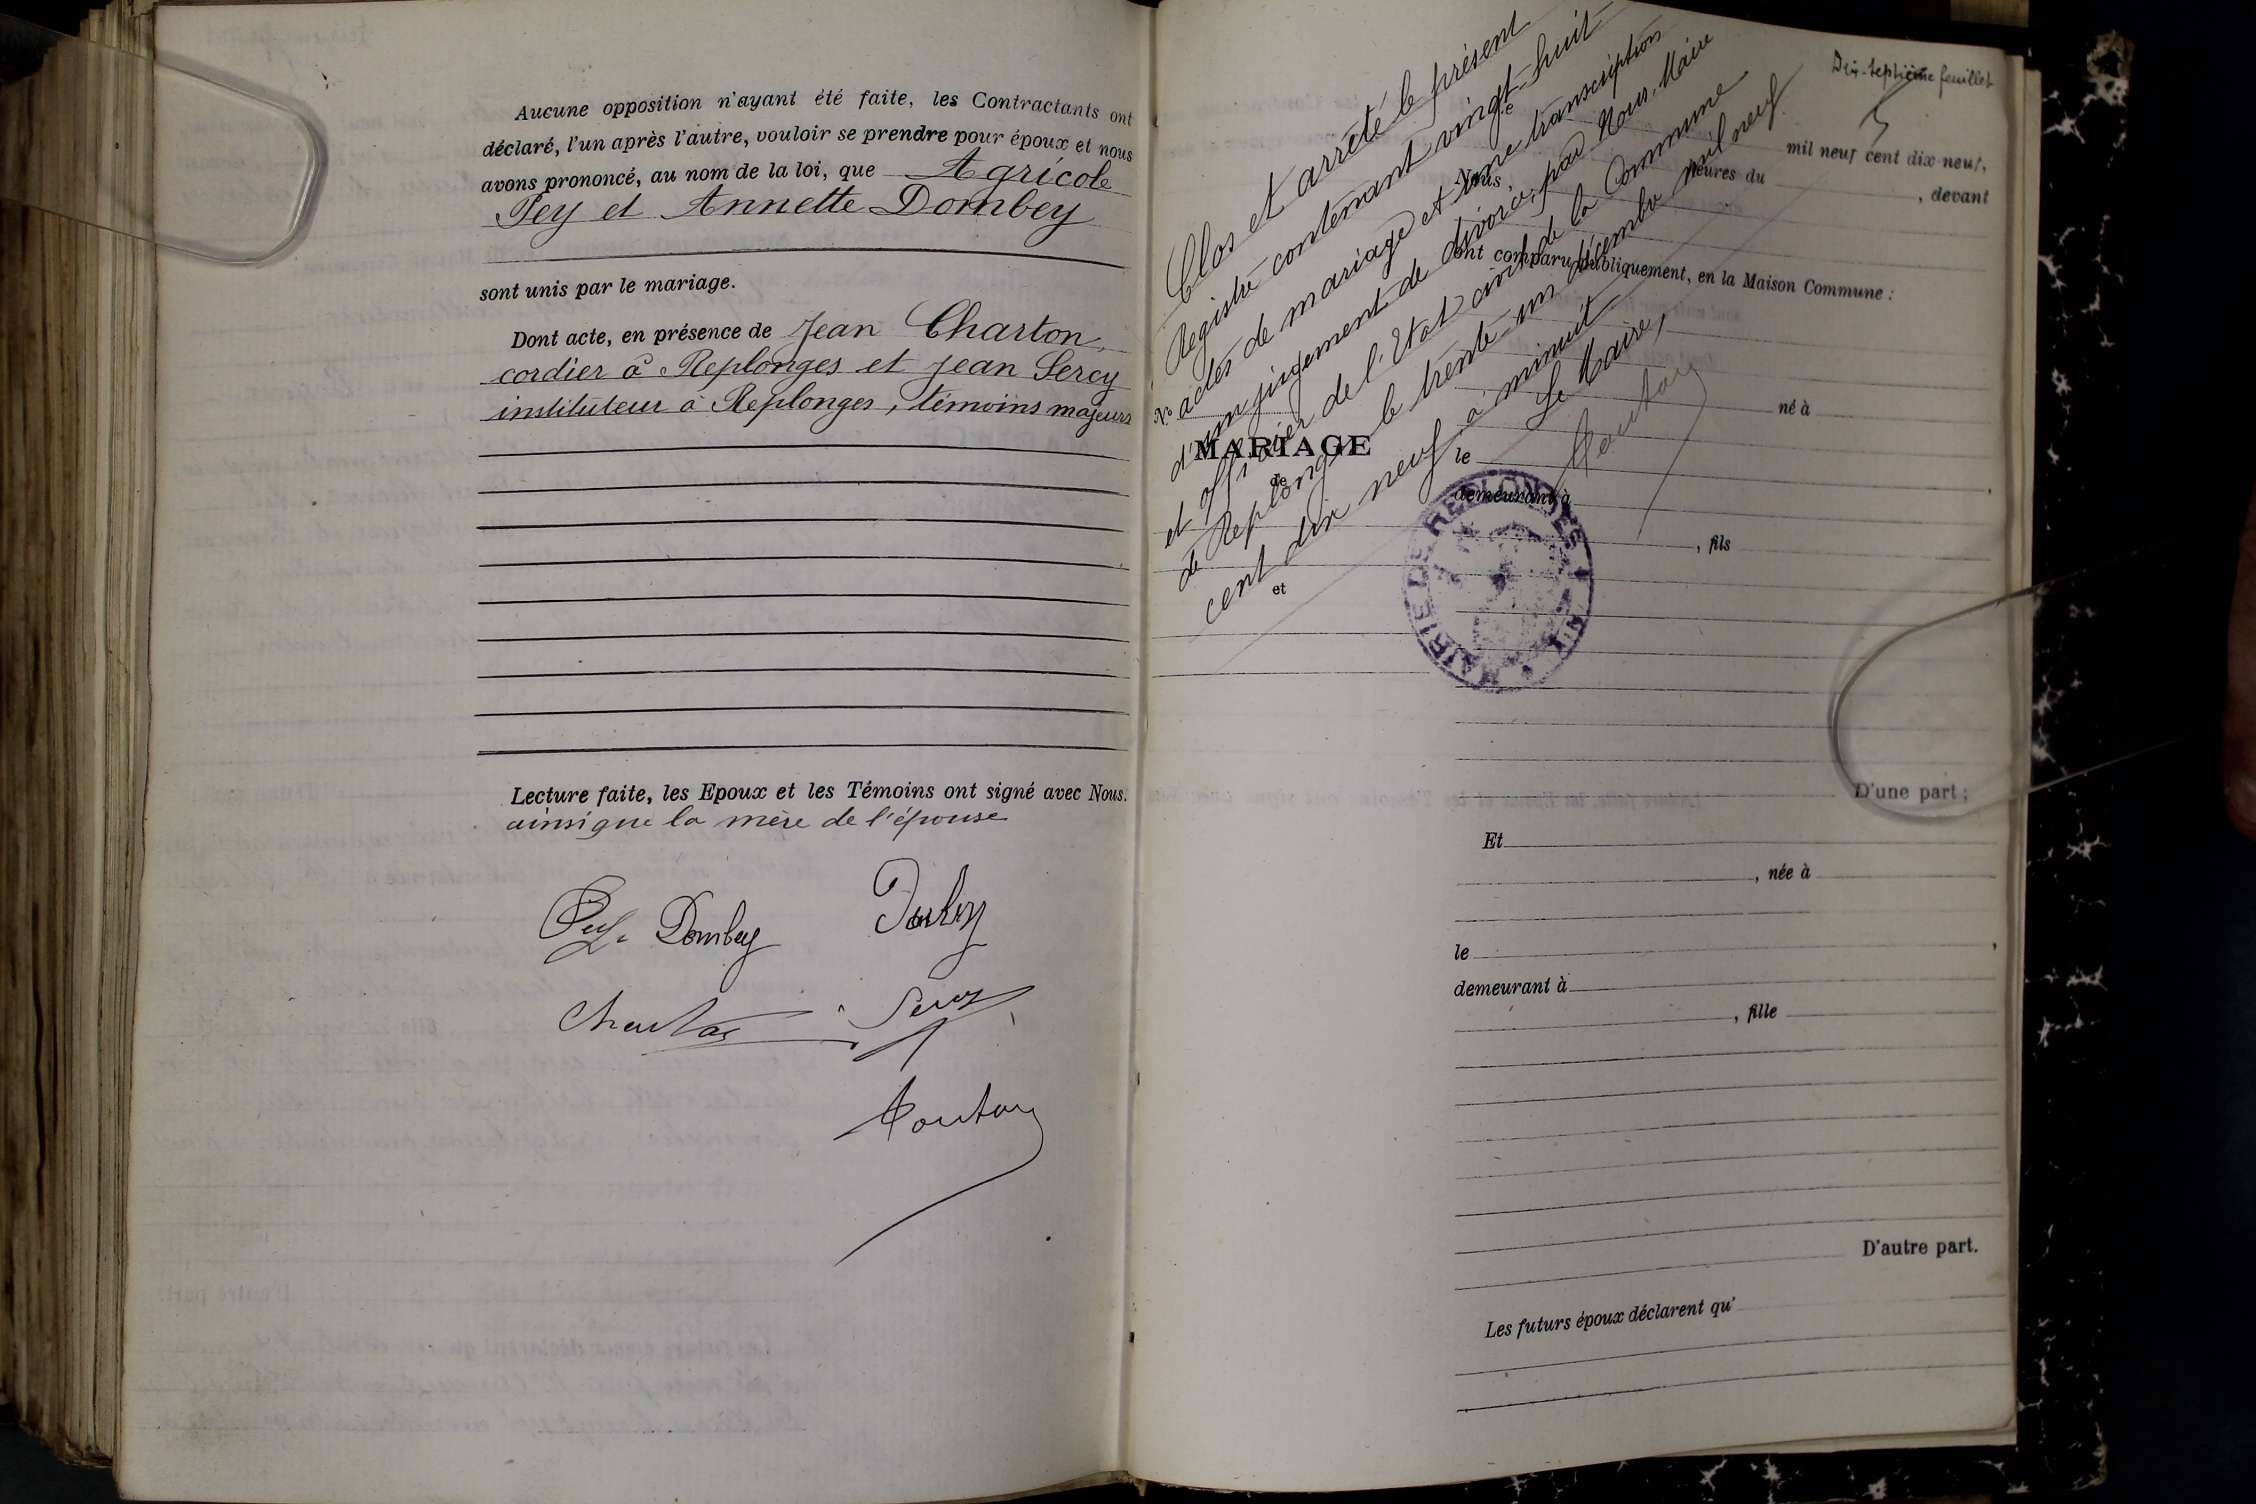 Aucune opposition n'ayant été faite, les Contractants ont
déclaré, l'un après l'autre, vouloir se prendre pour époux et nous
avons prononcé, au nom de la loi, que Agricole
Pey et Annette Dombey
sont unis par le mariage.
Dont acte, en présence de Jean Charton,
cordier à Replonges et Jean Sercy
instituteur à Replonges, témoins majeurs
Lecture faite, les Epoux et les Témoins ont signé avec Nous.
ainsi que la mère de l'épouse
Pey Dombey
Charton Sercy
Dix-septième feuillet
Clos et arrêté le présent
Registre contenant vingt-huit
actes de mariage et une transcription
d'un jugement de divorce, par Nous, Maire
et officier de l'Etat civil de la Commune
de Replonges le trente-un décembre mil neuf
cent dix neuf à minuit
Le Maire,
MAIRIE DE REPLONGES
mil neuf cent dix-neuf,
heures du , devant
Nous,
ont comparu publiquement, en la Maison Commune :
N°
MARIAGE
de
et
né à
le
demeurant à
, fils
D'une part ;
Et
, née à
le
demeurant à
, fille
D'autre part.
Les futurs époux déclarent qu'